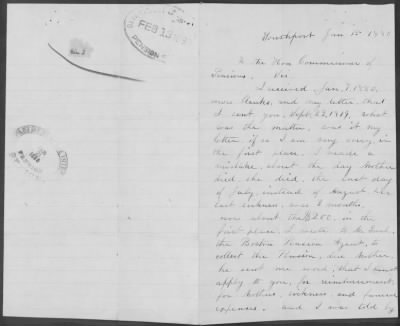 FEB 13
PENSION
Southport Jan 15 1880
To the Hon Commissioner of
Pensions, Sir
I received Jan. 7, 1880,
more blanks, and my letter, that
I sent you, Sept. 23, 1879, what
was the matter, was it my
letter, if so I am very sorry, in
the first place, I made a
mistake, about the day Mother
died, she died, the last day
of July, instead of August, her
last sickness, was 8 months,
now about the $200, in the
first place, I wrote to Mr
the Boston Pension Agent, to
collect the Pension, due Mother,
he sent me word, that I must
apply to you, for reimbursement,
for Mothers, sickness, and funeral
expenses, and I was told by